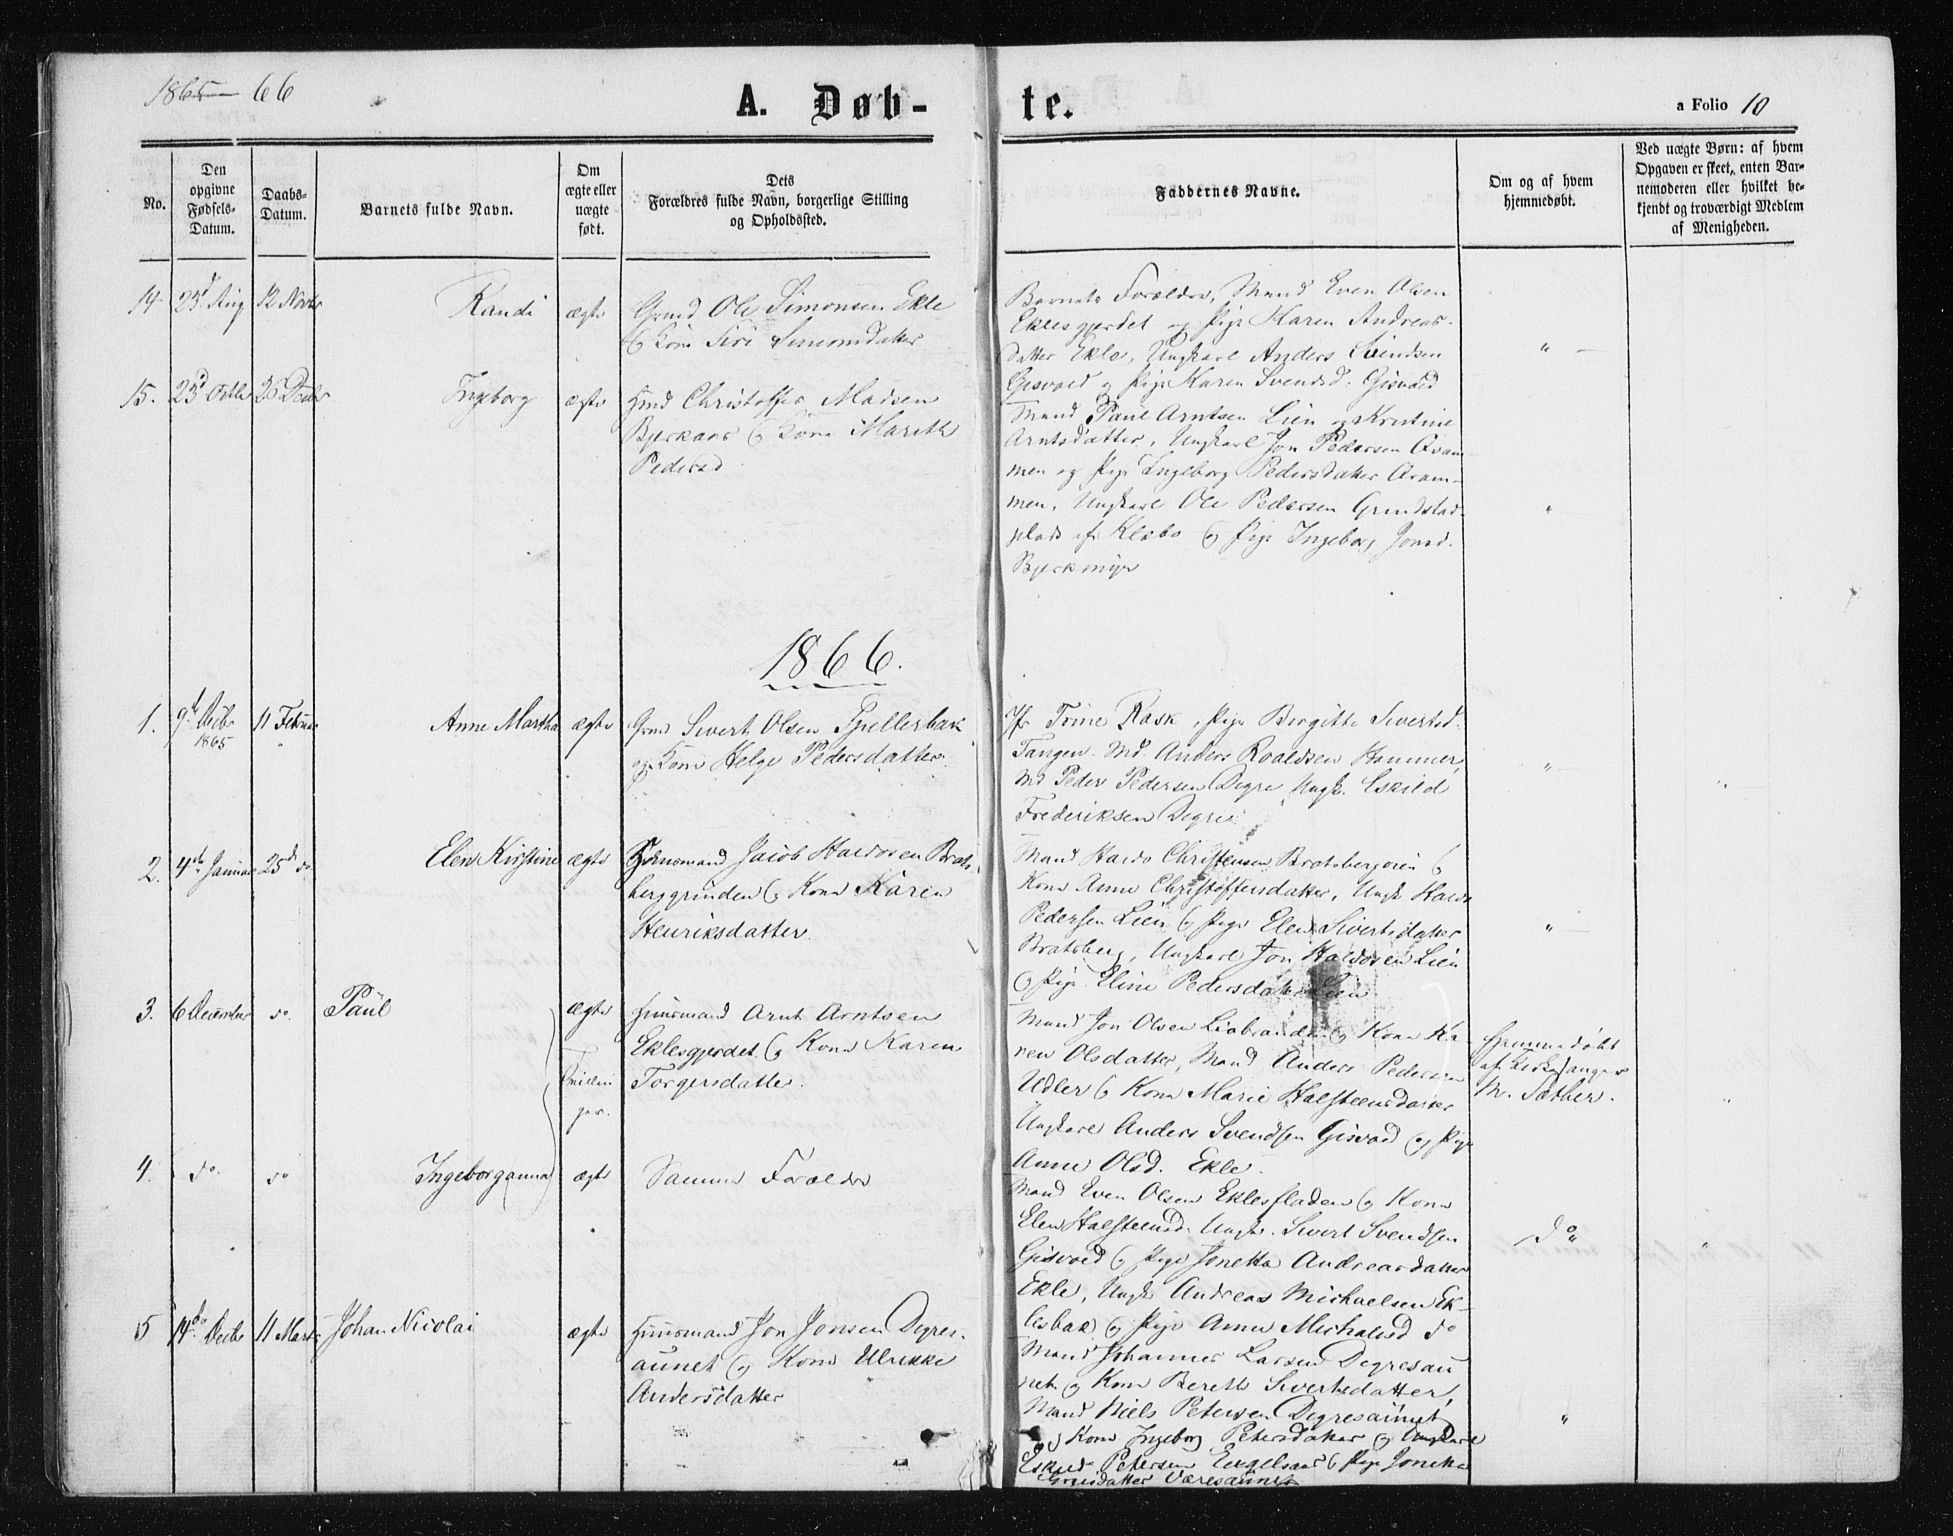 1865 66
A. Døb-
te.
a Folio 10
No.
Den opgivne Fødsels-Datum.
Daabs-Datum.
Barnets fulde Navn.
Om ægte eller uægte født.
Dets Forældres fulde Navn, borgerlige Stilling og Opholdssted.
Faddernes Navne.
Om og af hvem hjemmedøbt.
Ved uægte Børn: af hvem Opgaven er skeet, enten Barnemoderen eller hvilket bekjendt og troværdigt Medlem af Menigheden.
14 23d Aug 12 Novbr Randi ægte
Grmd Ole Simonsen Ekle
& Kone Siri Simonsdatter
Barnets Forældre, Mand Even Olsen
Eklesgjerdet og Pige Karen Andreas-
datter Ekle, Ungkarl Anders Svendsen
Gisvold og Pige Karen Svendsd. Gisvold
15. 23d Octbr 26 Decbr Ingeborg ægte
Hmd Christoffer Madsen
& Kone Marith
Pedersd
Mand Paul Arntsen Lien og Kristine
Arntsdatter, Ungkarl Jon Pedersen Qvam-
men og Pige Ingeborg Pedersdatter Qvam-
men, Ungkarl Ole Pedersen Grendstad-
plads af Klæbo & Pige Ingeborg Jonsd.
1866.
1. 9de Decbr 1865 11 Februar Anne Martha ægte
Grmd Sivert Olsen Tjellerbak
og Kone Helge Pedersdatter
Jfr Trine Rask, Pige Birgitte Sivertsd.
Tangen. Md. Anders Roaldsen Hammer,
Md Peder Pedersen Degre Ungk. Eskild
Frederiksen Degre
2. 4de Januar 25de do Elen Kirstine ægte
Huusmand Jacob Haldosen Brats-
berggrinden & Kone Karen
Henriksdatter.
Mand Haldo Christensen Bratsberggrin &
Kone Anne Christoffersdatter, Ungk Haldo
Pedersen Lien & Pige Elen Sivertsdatter
Bratsberg, Ungkarl Jon Haldosen Lien
& Pige Eline Pedersdatter Lien
3. 6 December do. Paul ægte
Tvillin
ger.
Huusmand Arnt Arntsen
Eklesgjerdet & Kone Karen
Torgersdatter.
Mand Jon Olsen & Kone Ka-
ren Olsdatter, Mand Anders Pedersen
Udler & Kone Marie Halsteensdatter
Ungkarl Anders Svendsen Gisvold og Pige
Anne Olsd. Ekle.
Hjemmedøbt
af Kirkesanger
M. Sæther.
4. do. do Ingeborganna ægte
Samme Forældre
Mand Even Olsen Eklesfladen & Kone
Elen Halsteensd. Ungk. Sivert Svendsen
Gisvold & Pige Jonetta Andreasdatter
Ekle, Ungk Andreas Michaelsen Ek-
lesbak & Pige Anne Michalsd do
do
5 14de Decbr 11 Marts Johan Nicolai ægte
Huusmand Jon Jonsen Degres-
aunet & Kone Ulrikke
Andersdatter
Mand Johannes Larsen Degresau
net & Kone Bereth Sivertsdatter,
Mand Niels Petersen Degresaunet
& Kone Ingeborg Petersdatter & Ungkarl
Eskild Petersen Engelsaas & Pige Jonetta